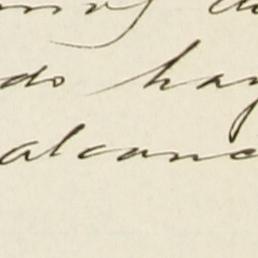 do hay
alcanc